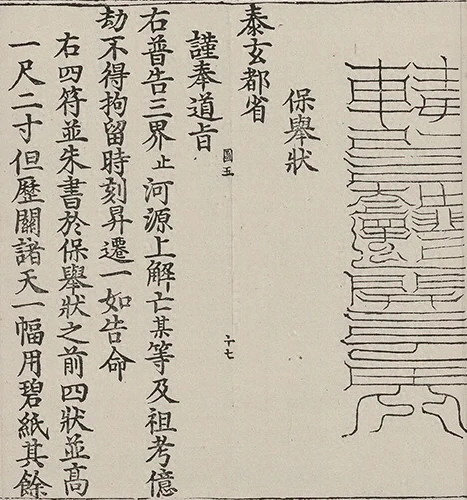 保舉狀
泰玄都省
國五
十七
謹奉道旨
右普告三界止河源上解亡某等及祖考億
劫不得拘留時刻昇遷一如告命
右四符並朱書於保舉狀之前四狀並高
一尺二寸但歷關諸天一幅用碧紙其餘